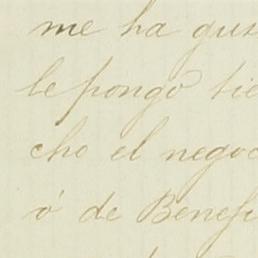 me ha gus
le pongo tie
cho el negoc
ó de Benefi